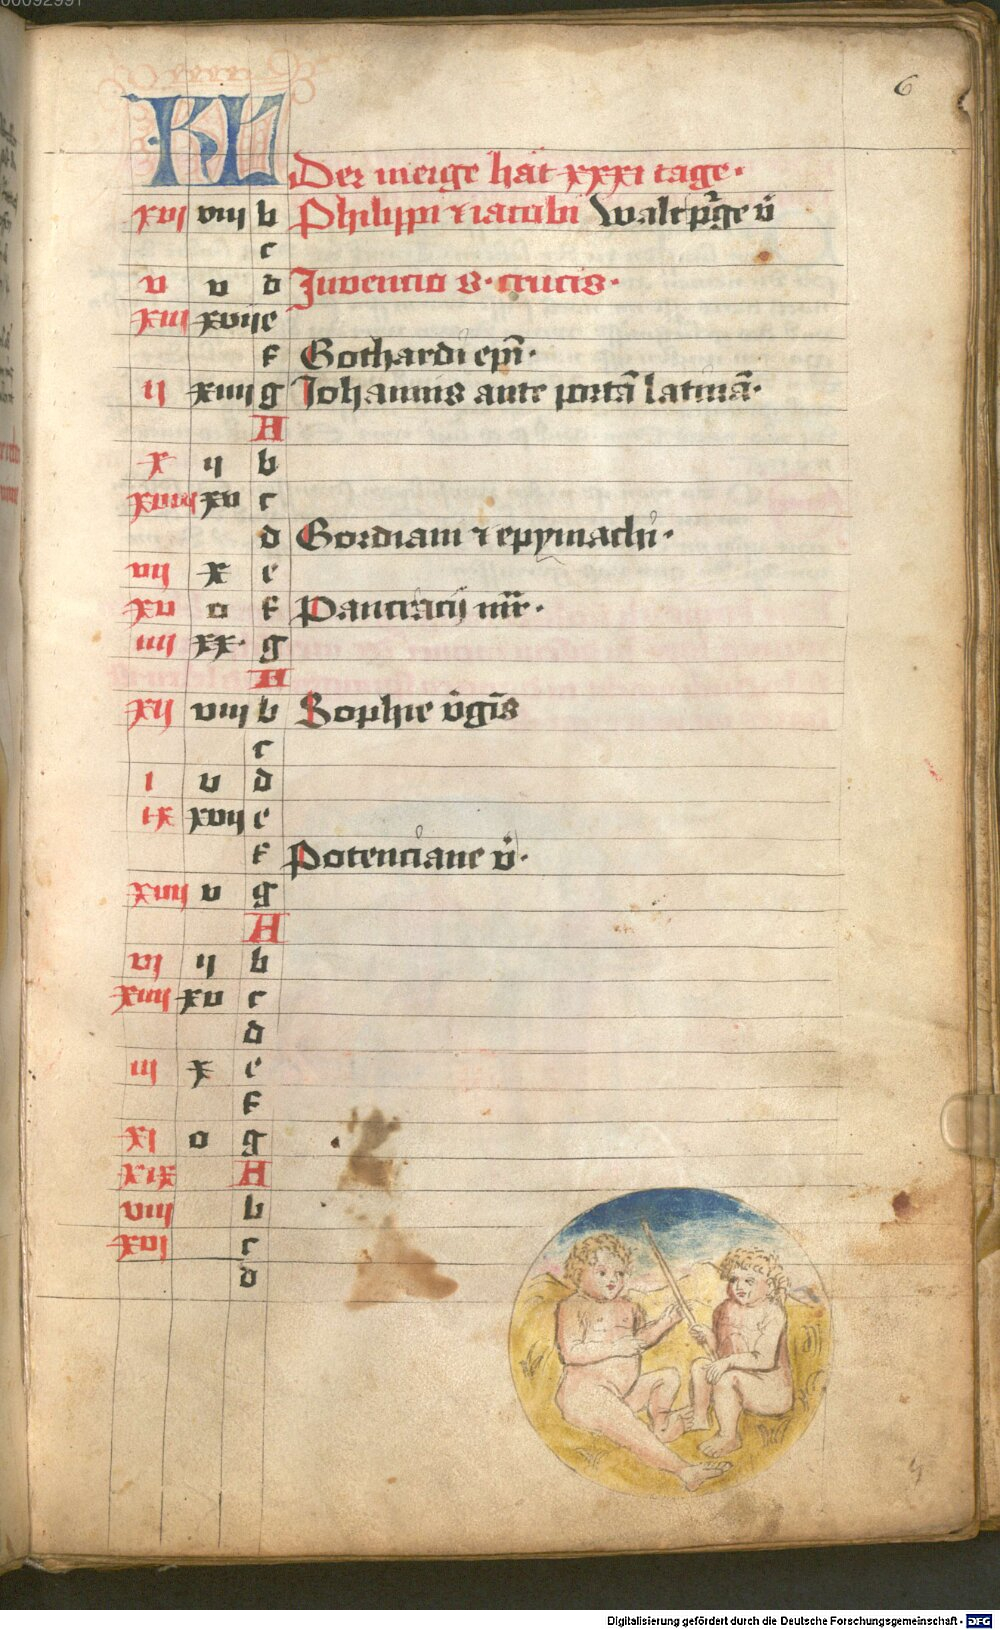 6
KL
Der meige hat xxxi tage·
xvi viii b Philippi et iacobi Waltpurge v̄
c
v v d Juuencio s· crucis·
xiii xvii e
f Gothardi epī·
ii xiiii g Johannis ante portā latinā·
A
x ii b
xviii xv c
d Gordiani et epymachi·
vii x e
xv o f Pancracij mr̄·
iiii xx· g
A
xii viii b Sophie v̄gīs
c
i v d
ix xvii e
f Potenciane v̄·
xvii v g
A
vi ii b
xiiii xv c
d
iii x e
f
xi o g
xix A
viii b
xvi c
d
Digitalisierung gefördert durch die Deutsche Forschungsgemeinschaft - DFG